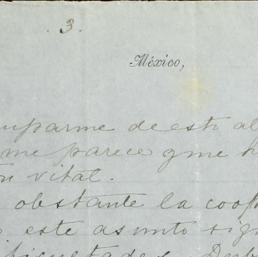 3.
México,
uparme de este al
me parece que h
vital.
obstante la coop
este asunto sig